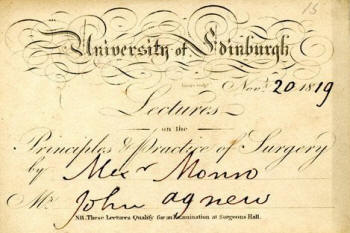 15
University of Edinburgh
Novr. 20 1819
Lectures
on the
Principles & Practice of Surgery
by Alexr Monro
Mr. John Agnew
NB. These Lectures Qualify for an Examination at Surgeons Hall.